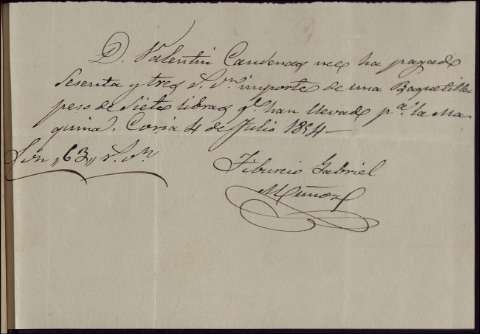 D. Valentin Cardenas me ha pagado
Sesenta y tres r. vn. importe de una
peso de siete libras q.e han llevado p.a la Ma-
quina. Coria 4 de Julio 1854
Son „63„ r. vn
Tiburcio Gabriel
Muñoz